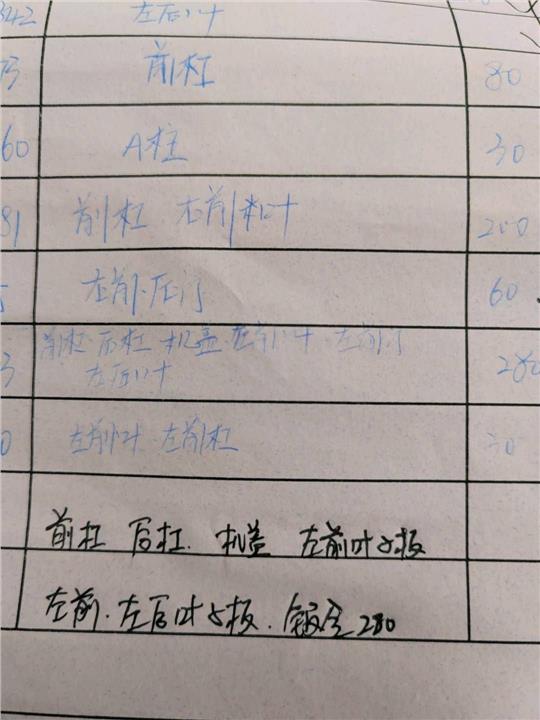 342 左后叶
前杠 80
60 A柱 30
81 前杠 右前叶 200
左前.后门 60
3 前杠.后杠.机盖.左前叶.左前门 280
左后叶
0 左前叶.左前杠 30
前杠 后杠. 机盖 左前叶子板
左前.左后叶子板.钣金280